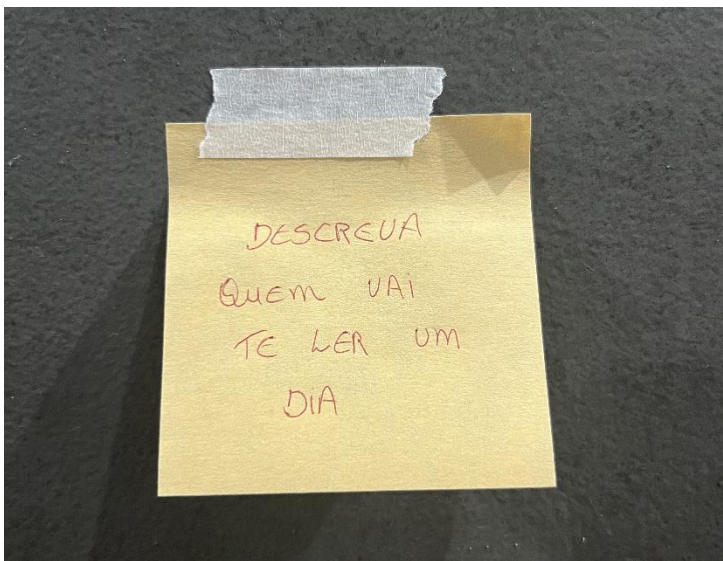 DESCREVA
QUEM VAI
TE LER UM
DIA